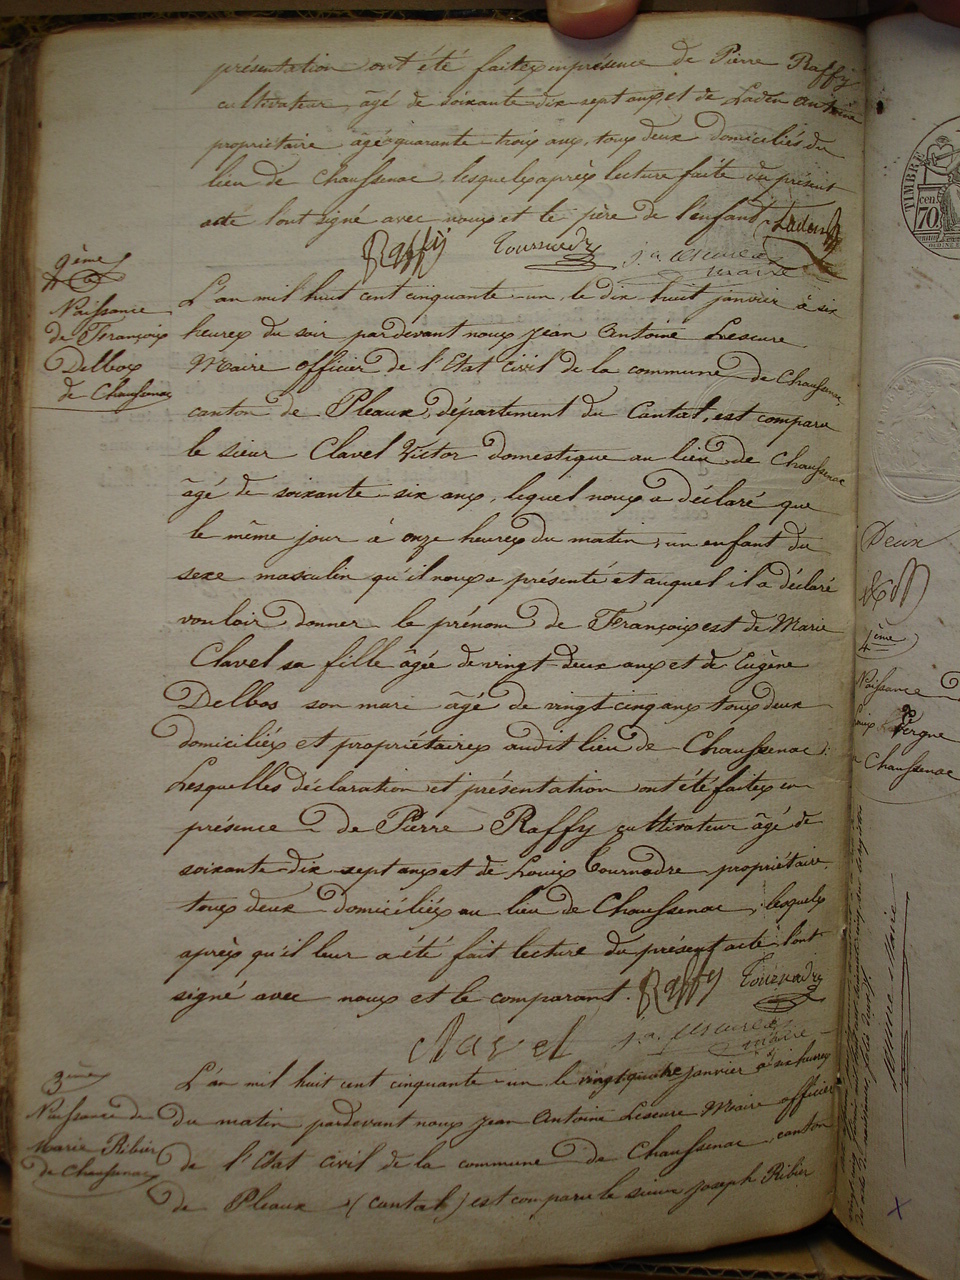 présentation ont été faites en présence de Pierre Raffy
cultivateur, âgé de soixante dix sept ans et de Laden Antoine
propriétaire âgé quarante trois ans, tous deux domiciliés du
lieu de Chaussenac lesquels après lecture faite du présent
acte l'ont signé avec nous et le père de l'enfant. Laden
Raffy Tournadre j.a. Lescure
maire
2ème
Naissance
de François
Delbos
de Chaussenac
L'an mil huit cent cinquante-un le dix huit janvier à six
heures du soir pardevant nous Jean Antoine Lescure
Maire officier de l'Etat Civil de la commune de Chaussenac,
canton de Pleaux, département du Cantal, est comparu
le sieur Clavel Victor domestique au lieu de Chaussenac
âgé de soixante-six ans, lequel nous a déclaré que
le même jour à onze heures du matin, un enfant du
sexe masculin qu'il nous a présenté et auquel il a déclaré
vouloir donner le prénom de François est de Marie
Clavel sa fille âgée de vingt-deux ans et de Eugène
Delbos son mari âgé de vingt cinq ans tous deux
domiciliés et propriétaires audit lieu de Chaussenac.
Lesquelles déclaration et présentation ont été faites en
présence de Pierre Raffy cultivateur âgé de
soixante-dix sept ans et de Louis Tournadre propriétaire,
tous deux domiciliés au lieu de Chaussenac, lesquels
après qu'il leur a été fait lecture du présent acte l'ont
signé avec nous et le comparant. Raffy Tournadre
Clavel j.a. Lescure
maire
3ème
Naissance de
Marie Ribier
de Chaussenac
L'an mil huit cent cinquante-un le vingt quatre janvier à six heures
du matin pardevant nous Jean Antoine Lescure Maire officier
de l'Etat Civil de la commune de Chaussenac, canton
de Pleaux (Cantal) est comparu le sieur Joseph Ribier
TIMBRE
cen
70
Deux
4ème
Naissance
Vergne
Chaussenac